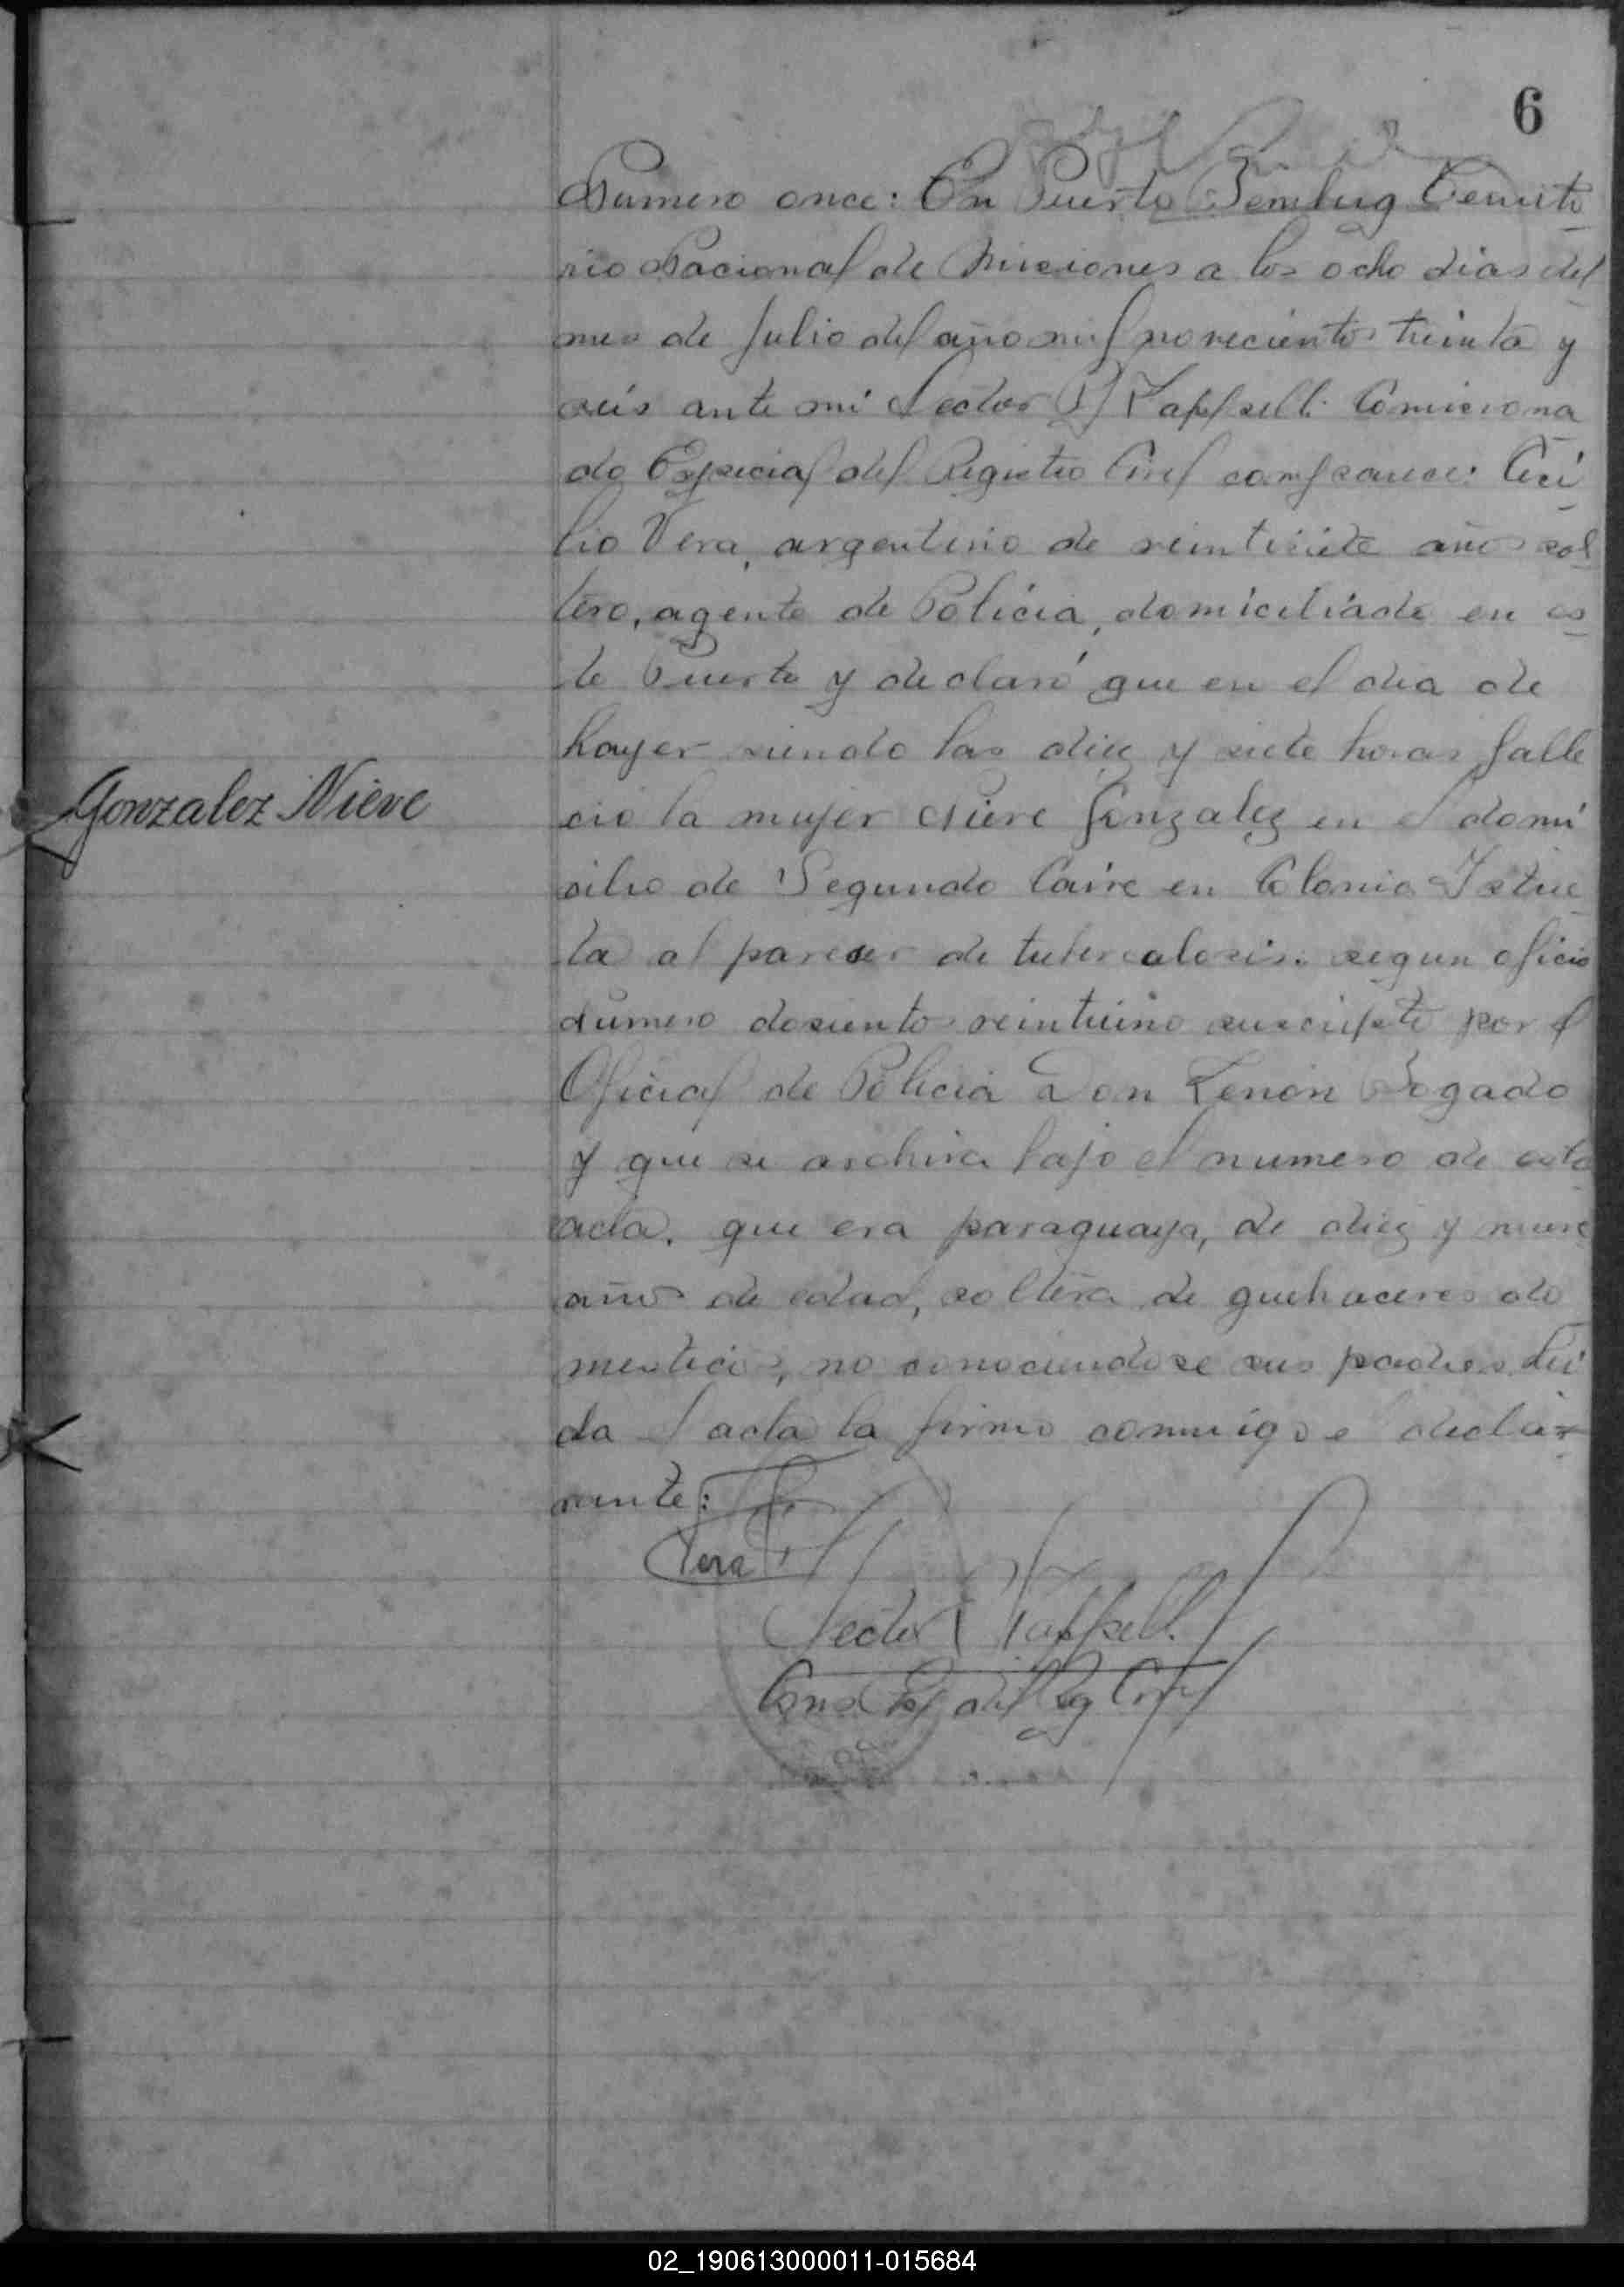 6
Numero once: En Puerto Bemberg Territo
rio Nacional de Misiones a los ocho dias del
mes de Julio del año mil novecientos treinta y
seis ante mi Hector Comisiona
do Especial del Registro Civil comparece: Ceci
lio Vera, argentino de veintisiete años sol
tero, agente de Policia, domiciliado en es
te Puerto y declaró que en el dia de
hayer siendo las diez y siete horas falle
Gonzalez Nieve
cio la mujer Nieve Gonzalez en el domi
silio de Segundo en Colonia
ta al parecer de tuberculosis: segun oficio
numero dosciento veintiuno suscripto por el
Oficial de Policia Don Zenón Bogado
y que se archiva bajo el numero de esta
acta. que era paraguaya, de diez y nueve
años de edad, soltera de quehaceres do
mesticos, no conociendose sus padres. Lei
da l acta la firmo conmigo el decla
rante:
Vera
Hector
Com Esp del Reg Civil
02_190613000011-015684